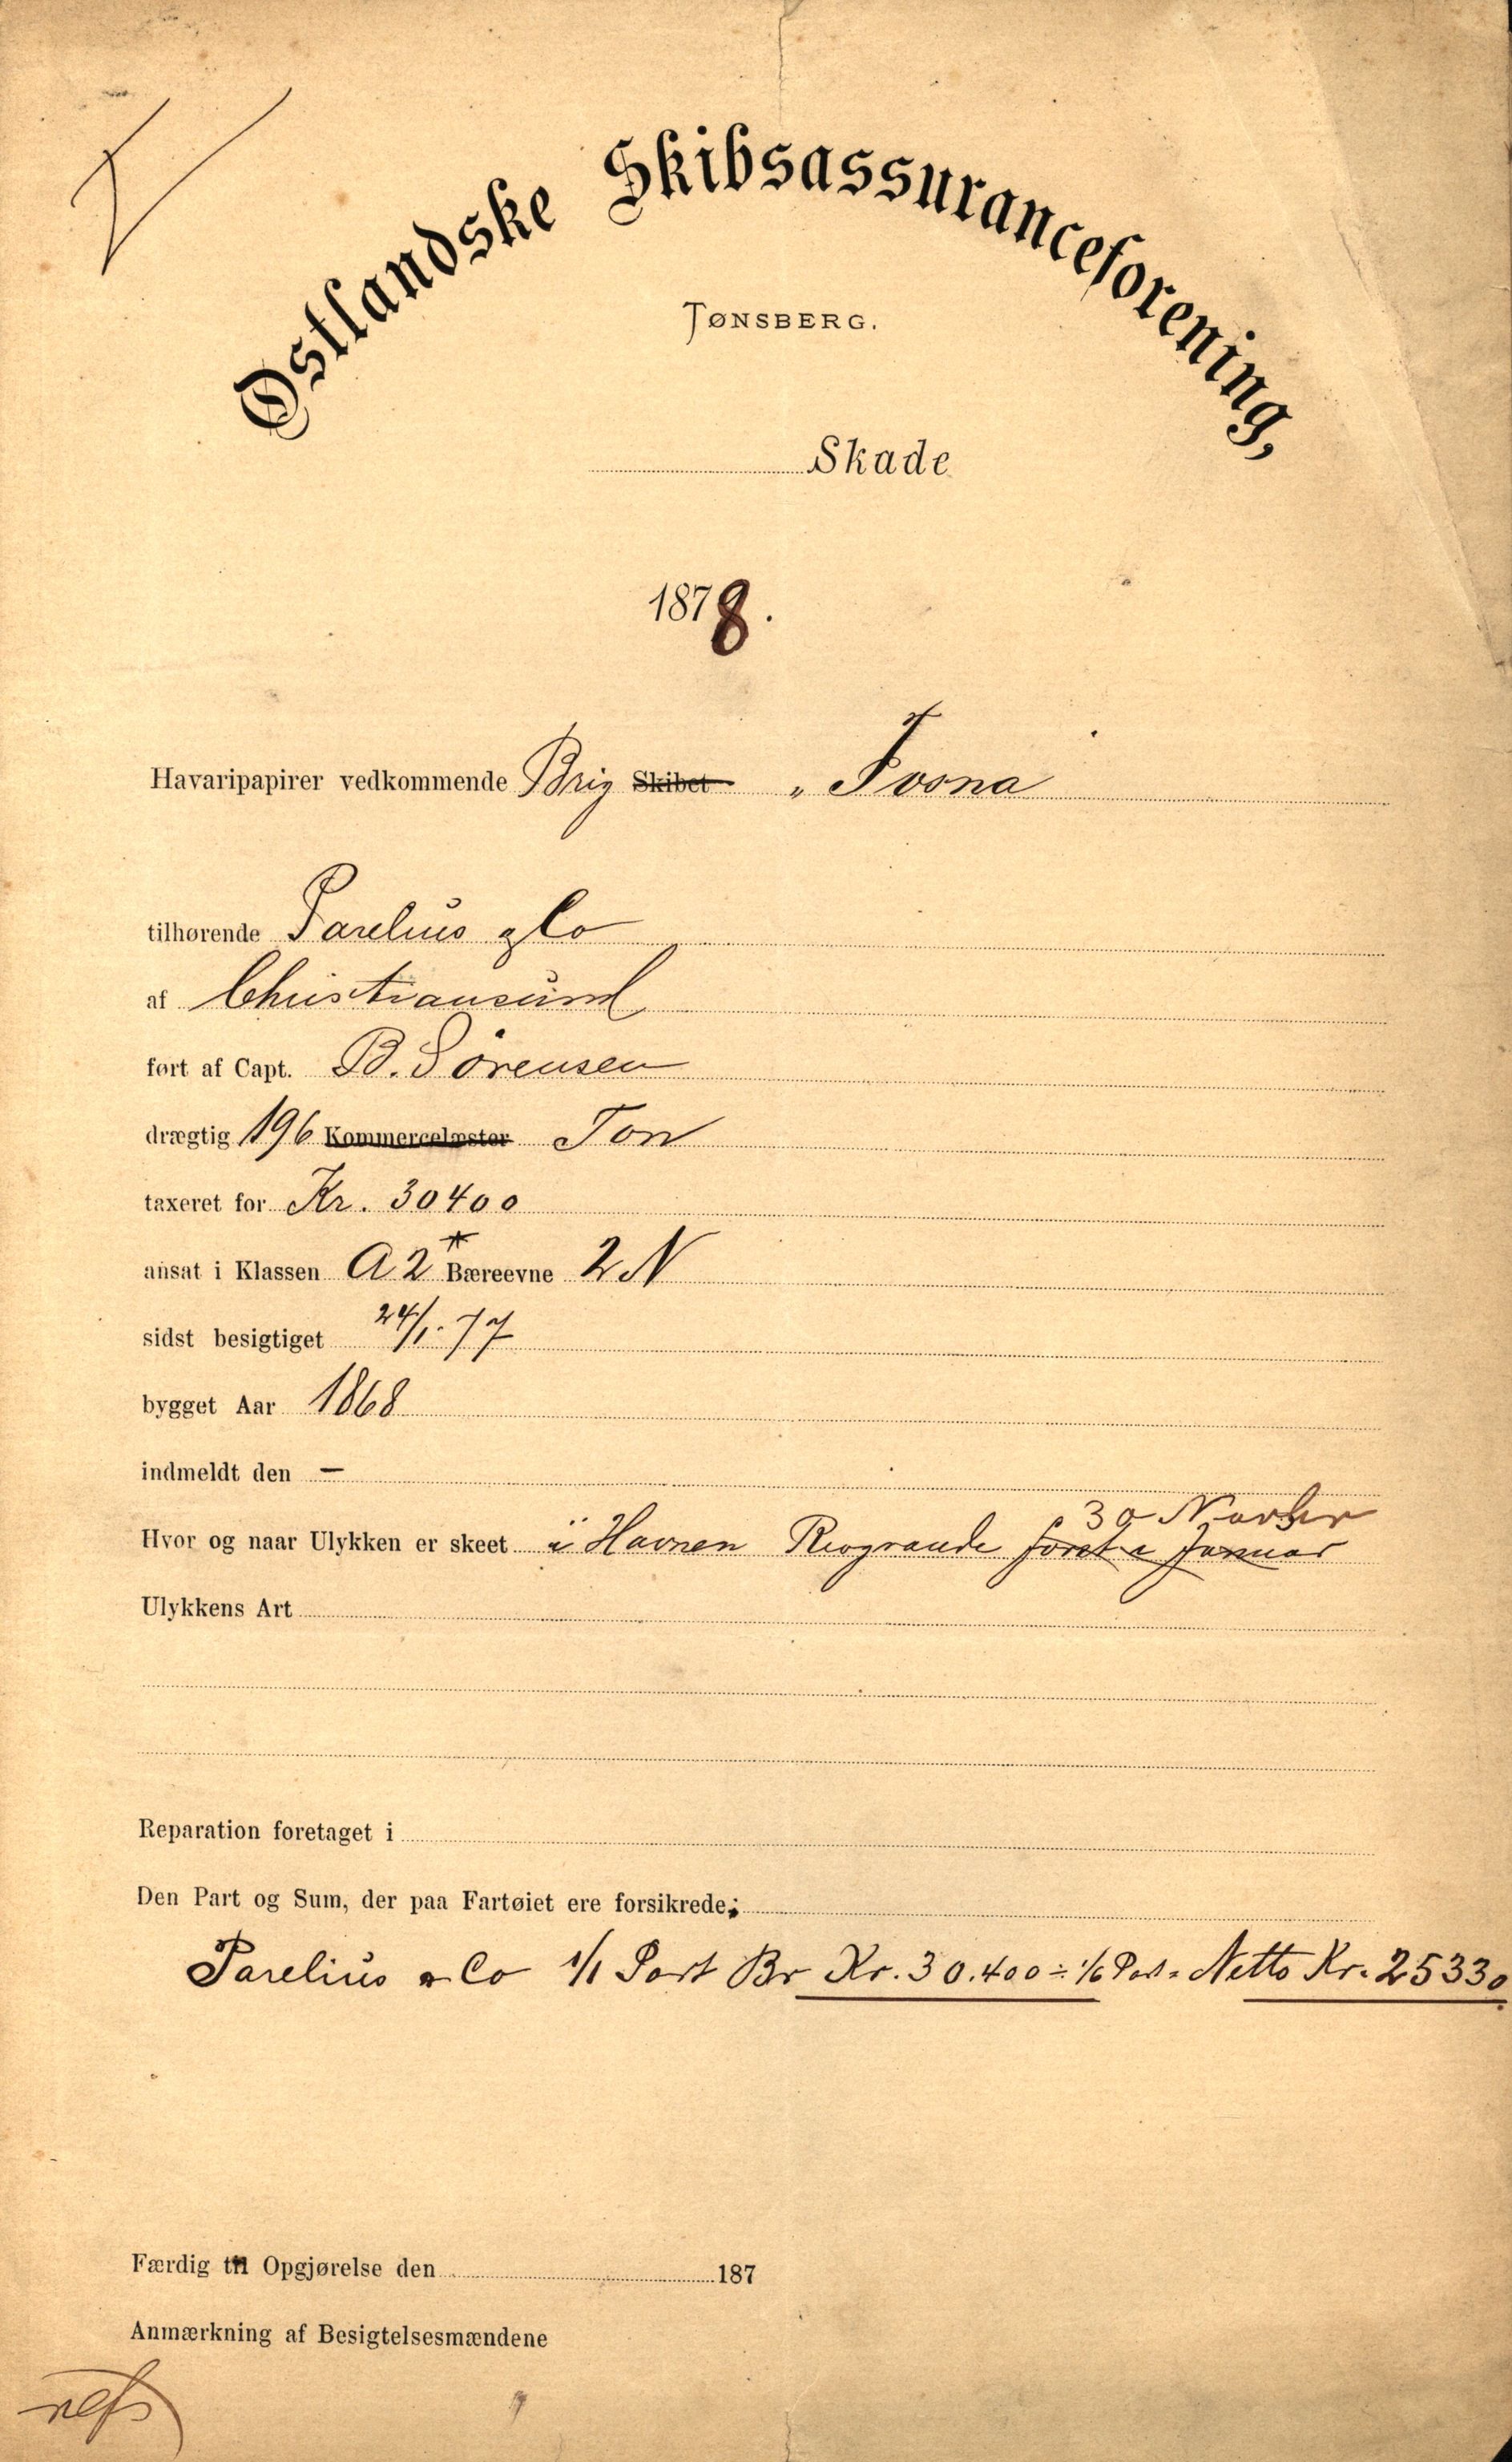 Østlandske Skibsassuranceforening,
TØNSBERG.
Skade
1878.
Havaripapirer vedkommende Brig Skibet „ Ivona
tilhørende Parelius & Co
af Christiansund
ført af Capt. B. Sörensen
drægtig 196 Kommercelæster Ton
taxeret for Kr. 30400
ansat i Klassen A2* Bæreevne 2 N
sidst besigtiget 24/1. 77
bygget Aar 1868
indmeldt den —
30 Novber
Hvor og naar Ulykken er skeet i Havnen Riogrande først i Januar
Ulykkens Art
Reparation foretaget i
Den Part og Sum, der paa Fartøiet ere forsikrede;
Parelius & Co 1/1 Part Br Kr. 30.400 ÷ 1/6 Part = Netto Kr. 25330
Færdig til Opgjørelse den 187
Anmærkning af Besigtelsesmændene